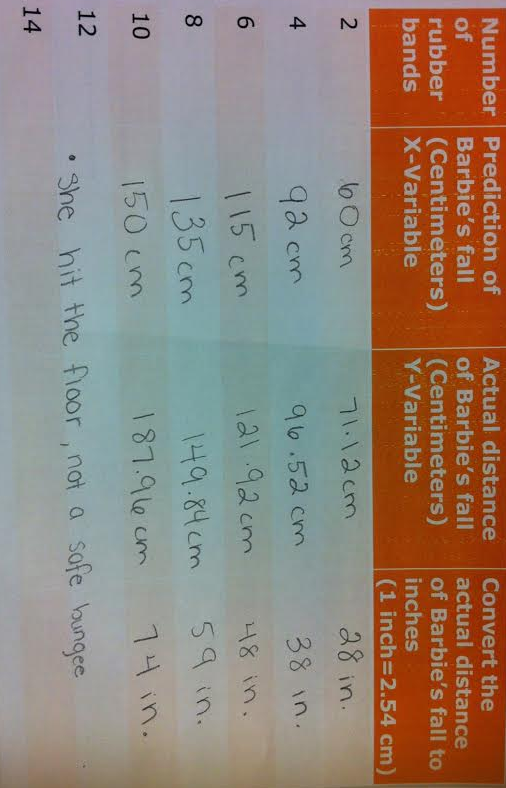 Number of rubber bands
Prediction of Barbie's fall (Centimeters) X-Variable
Actual distance of Barbie's fall (Centimeters) Y-Variable
Convert the actual distance of Barbie's fall to inches (1 inch=2.54 cm)
2 60cm 71.12cm 28 in.
4 92 cm 96.52 cm 38 in.
6 115 cm 121.92 cm 48 in.
8 135 cm 149.84 cm 59 in.
10 150 cm 187.96 cm 74 in.
12 • She hit the floor, not a safe bungee
14